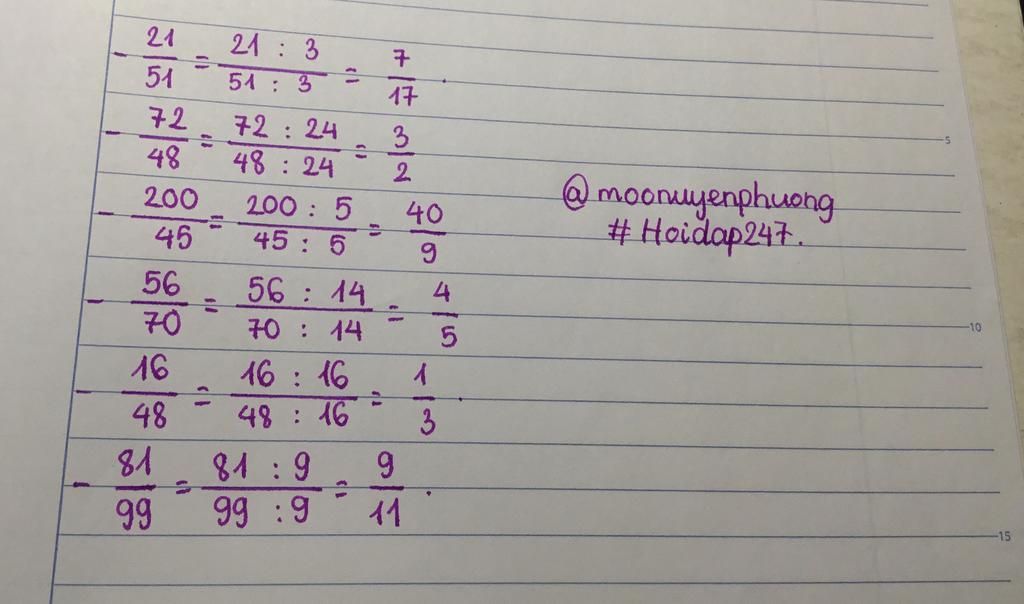 - 21/51 = 21 : 3/51 : 3 = 7/17 .
- 72/48 = 72 : 24/48 : 24 = 3/2
- 200/45 = 200 : 5/45 : 5 = 40/9
@moonuyenphuong
# Hoidap247.
- 56/70 = 56 : 14/70 : 14 = 4/5
- 16/48 = 16 : 16/48 : 16 = 1/3 .
- 81/99 = 81 : 9/99 : 9 = 9/11 .
5
10
15